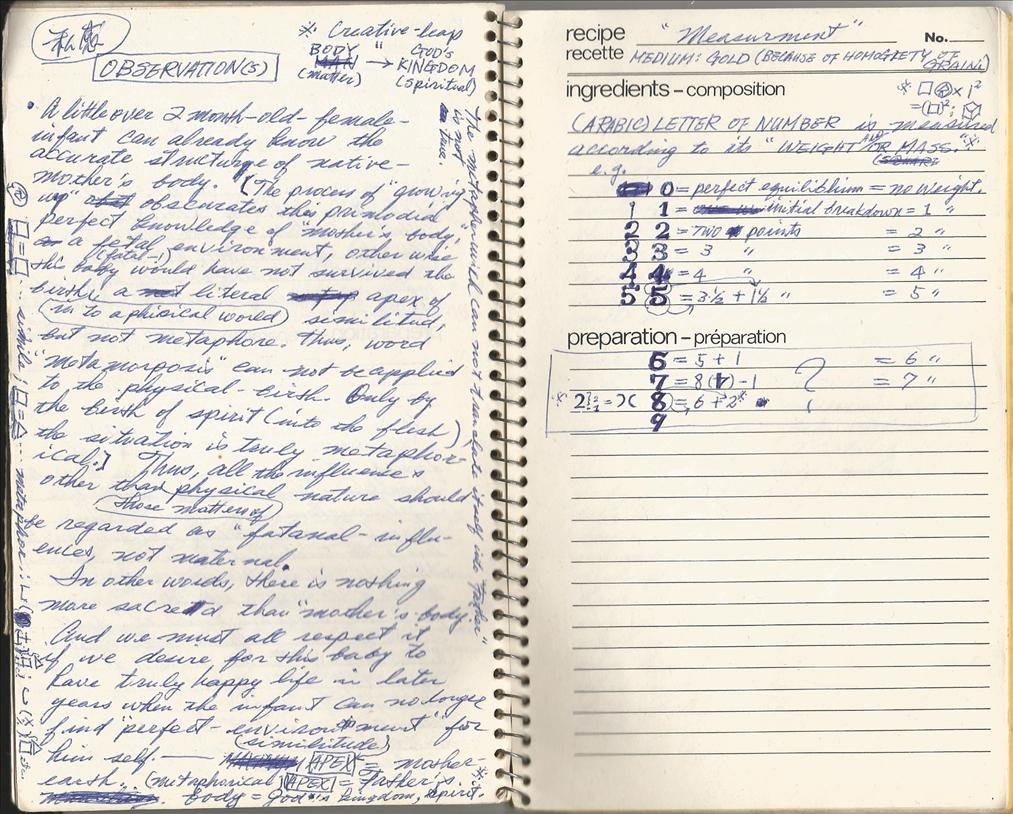 私感
OBSERVATION(S)
※ Creative-leap
BODY " GOD'S
(matter) → KINGDOM
(Spiritual)
• A little over 2 month-old-female-
infant can already know the
accurate structure of native-
mother's body. [(The process of "growing
up" obscurates this primodial
perfect knowledge of mother's body,
a fetal environment, other wise
(fatal-!)
this baby would have not survived the
birth, a literal apex of
(in to a phisical world) similitud,
but not metaphore. Thus, word
"metamorposis" can not be applied
to the physical-birth. Only by
the birth of spirit (into the flesh),
the situation is truly metaphor-
ical.] Thus, all the influences
other than physical nature should
(those matters of)
be regarded as "fatanal-influ-
ences, not maternal.
In other words, there is nothing
more sacred than "mother's-body.
And we must all respect it
if we desire for this baby to
have truly happy life in later
years when the infant can no longer
find "perfect-environment" for
(similitude)
him self. — [APEX] = mother-
earth. (metaphorical) [APEX] = father's.
body = God's kingdom, spirit.
The metaphore which can not translate itself into "father"
is not
true.
simile
metaphor
recipe "Measurment" No.
recette MEDIUM: GOLD (BECAUSE OF HOMOGIETY OF
GRAIN)
ingredients – composition
(ARABIC) LETTER OF NUMBER is measured
according to its "WEIGHT AND OR MASS.
e.g.
0 = perfect equilibium = no weight.
1 1 = initial breakdown = 1 "
2 2 = two points = 2 "
3 3 = 3 " = 3 "
4 4 = 4 " = 4 "
5 5 = 3½ + 1½ " = 5 "
preparation – préparation
6 = 5 + 1 = 6 "
7 = 8 - 1 ? = 7 "
8 = 6 + 2
9